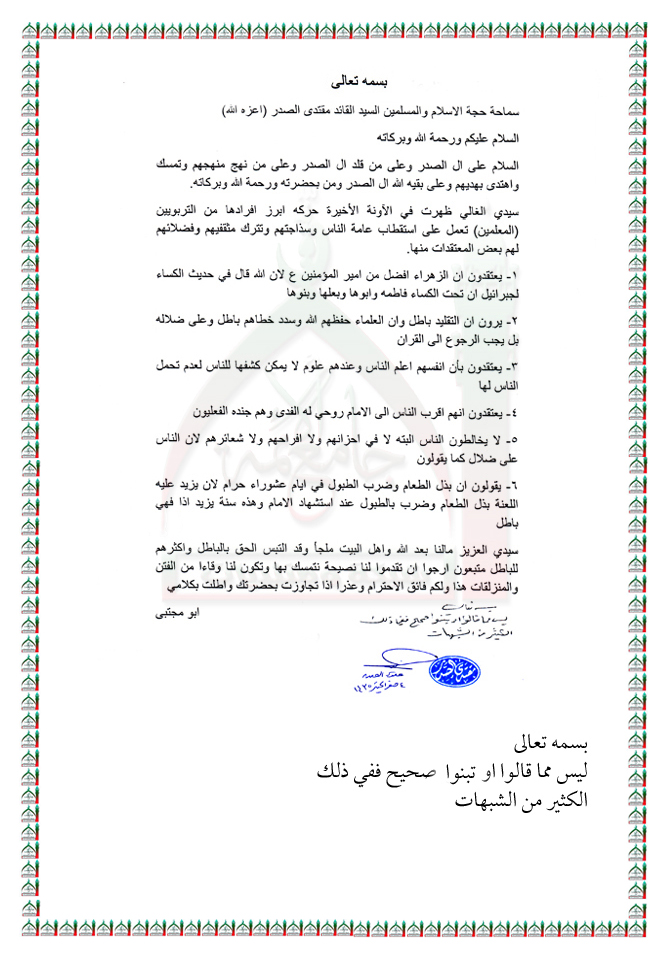 بسمه تعالى
سماحة حجة الاسلام والمسلمين السيد القائد مقتدى الصدر (اعزه الله)
السلام عليكم ورحمة الله وبركاته
السلام على ال الصدر وعلى من قلد ال الصدر وعلى من نهج منهجهم وتمسك
واهتدى بهديهم وعلى بقيه الله ال الصدر ومن بحضرته ورحمة الله وبركاته.
سيدي الغالي ظهرت في الآونة الأخيرة حركه ابرز افرادها من التربويين
(المعلمين) تعمل على استقطاب عامة الناس وسذاجتهم وتترك مثقفيهم وفضلائهم
لهم بعض المعتقدات منها.
١- يعتقدون ان الزهراء افضل من امير المؤمنين ع لان الله قال في حديث الكساء
لجبرائيل ان تحت الكساء فاطمه وابوها وبعلها وبنوها
٢- يرون ان التقليد باطل وان العلماء حفظهم الله وسدد خطاهم باطل وعلى ضلاله
بل يجب الرجوع الى القران
٣- يعتقدون بأن انفسهم اعلم الناس وعندهم علوم لا يمكن كشفها للناس لعدم تحمل
الناس لها
٤- يعتقدون انهم اقرب الناس الى الامام روحي له الفدى وهم جنده الفعليون
٥- لا يخالطون الناس البته لا في احزانهم ولا افراحهم ولا شعائرهم لان الناس
على ضلال كما يقولون
٦- يقولون ان بذل الطعام وضرب الطبول في ايام عشوراء حرام لان يزيد عليه
اللعنة بذل الطعام وضرب بالطبول عند استشهاد الامام وهذه سنة يزيد اذا فهي
باطل
سيدي العزيز مالنا بعد الله واهل البيت ملجأ وقد التبس الحق بالباطل واكثرهم
للباطل متبعون ارجوا ان تقدموا لنا نصيحة نتمسك بها وتكون لنا وقاءا من الفتن
والمنزلقات هذا ولكم فائق الاحترام وعذرا اذا تجاوزت بحضرتك واطلت بكلامي
ابو مجتبى
بسمه تعالى
ليس مما قالوا او تبنوا صحيح ففي ذلك
الكثير من الشبهات
مقتدى الصدر
٤ صفر الخير ١٤٣٥
بسمه تعالى
ليس مما قالوا او تبنوا صحيح ففي ذلك
الكثير من الشبهات